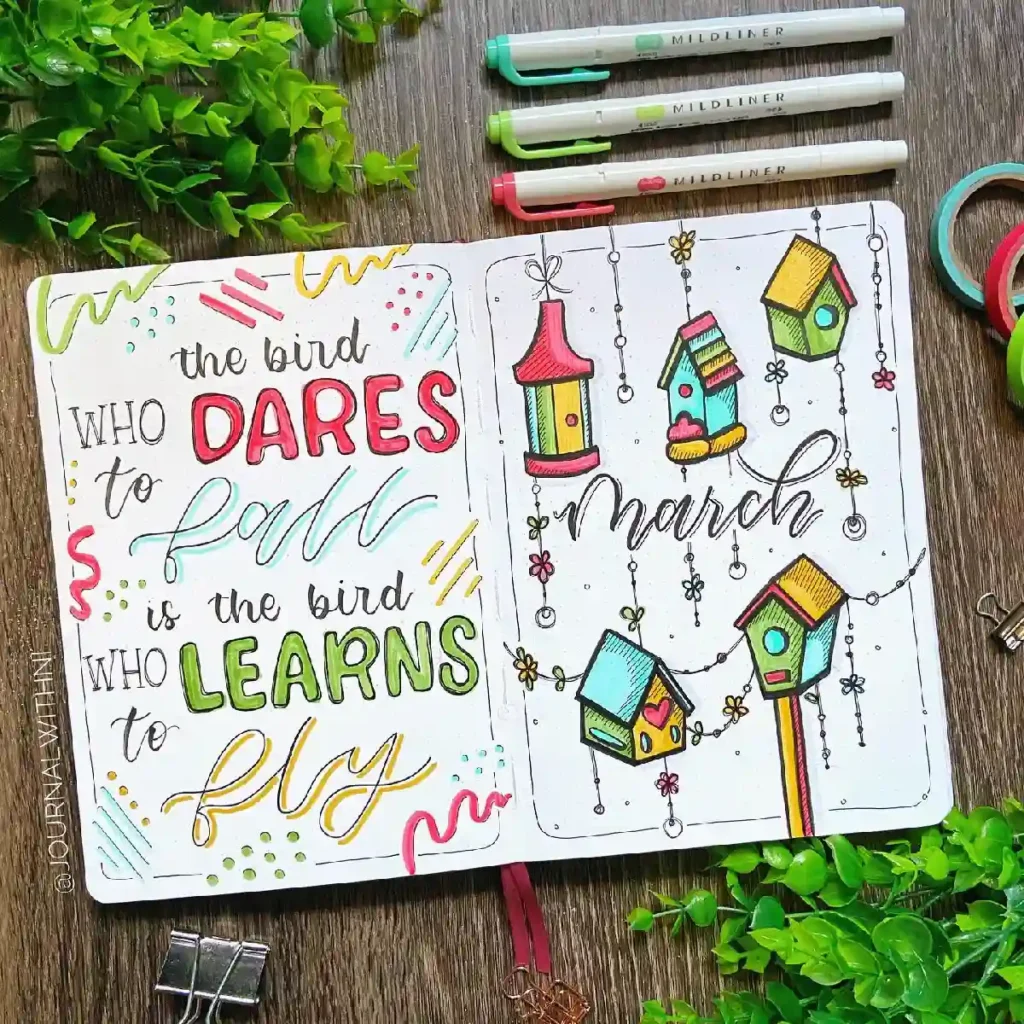 MILDLINER
MILDLINER
MILDLINER
the bird
WHO DARES
to
fall
is the bird
WHO LEARNS
to
fly
march
@JOURNALWITHNI